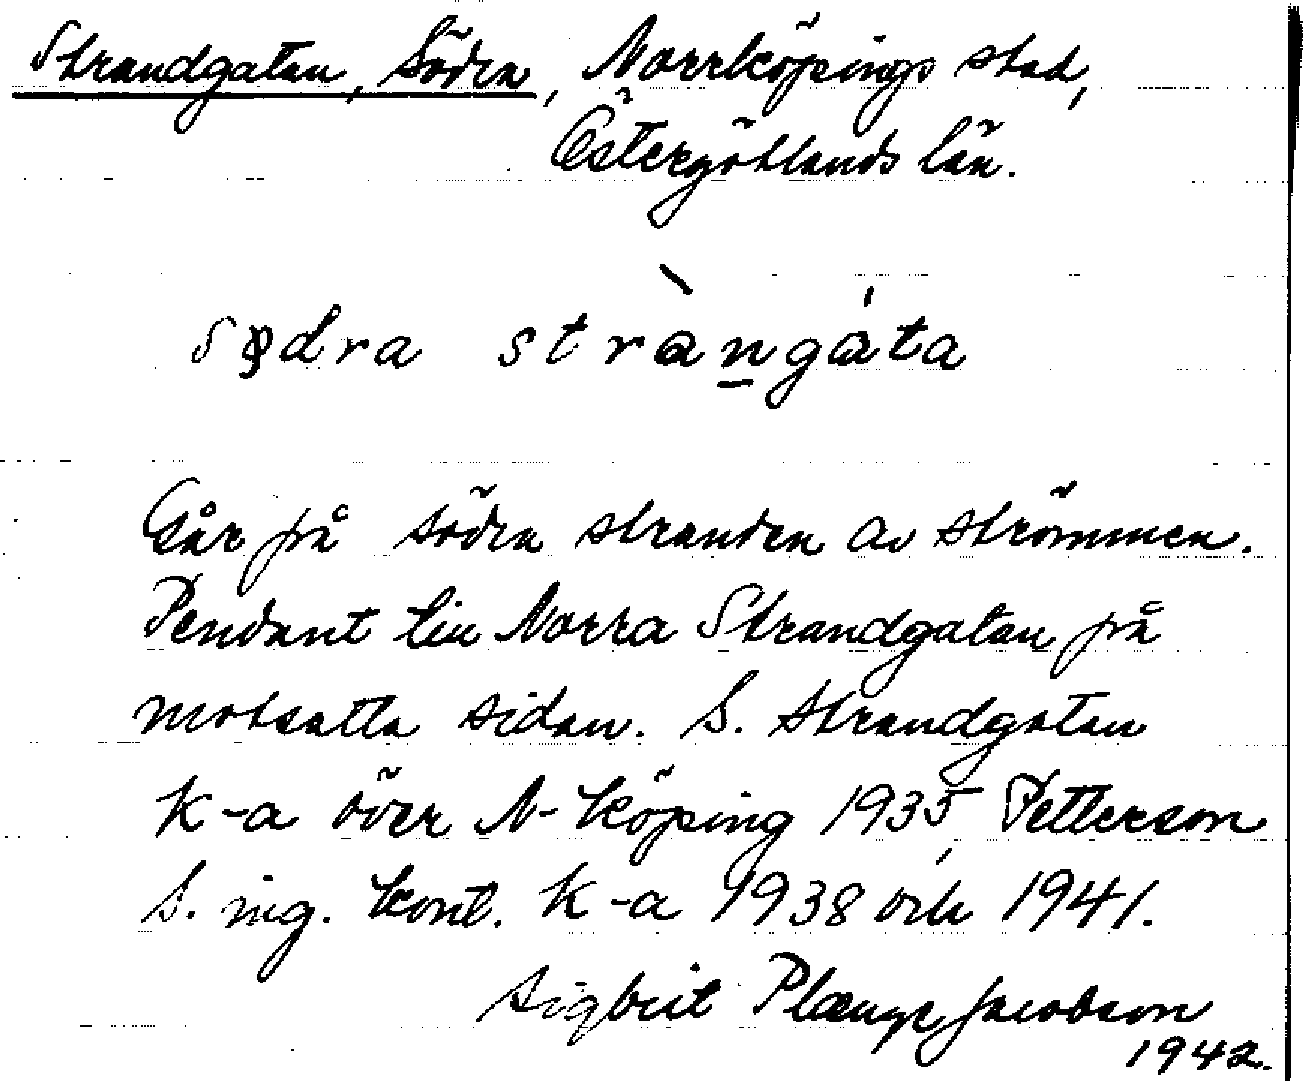 Strandgatan, Södra, Norrköpings stad,
Östergötlands län.
sødra stràngáta
Går på södra stranden av strömmen.
Pendant till Norra Strandgatan på
motsatta sidan. S. Strandgatan
K-a över N-köping 1935, Petterson
S. ing. kont. K-a 1938 och 1941.
Sigbrit Plænge Jacobson
1942.